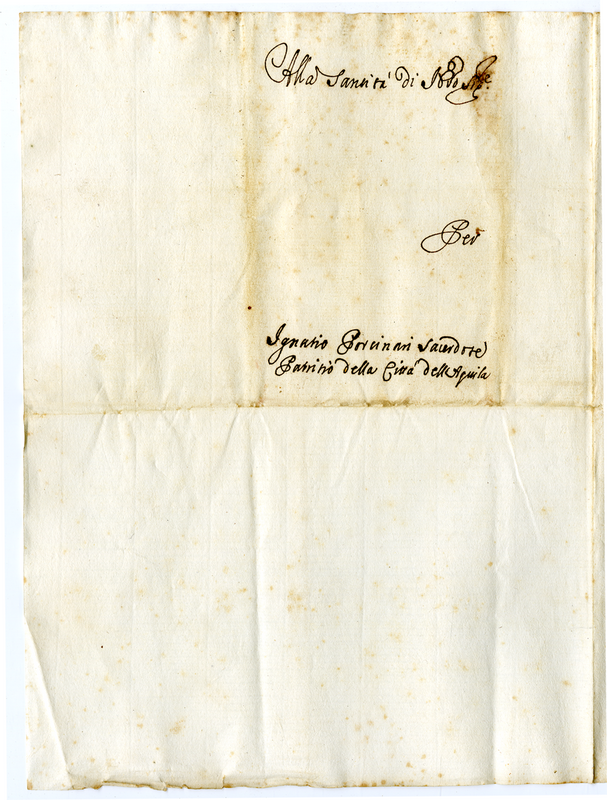 Alla Santità di N̄ro Sig.re
Per
Ignatio Porcinari Sacerdote
Patritio della Città dell'Aquila